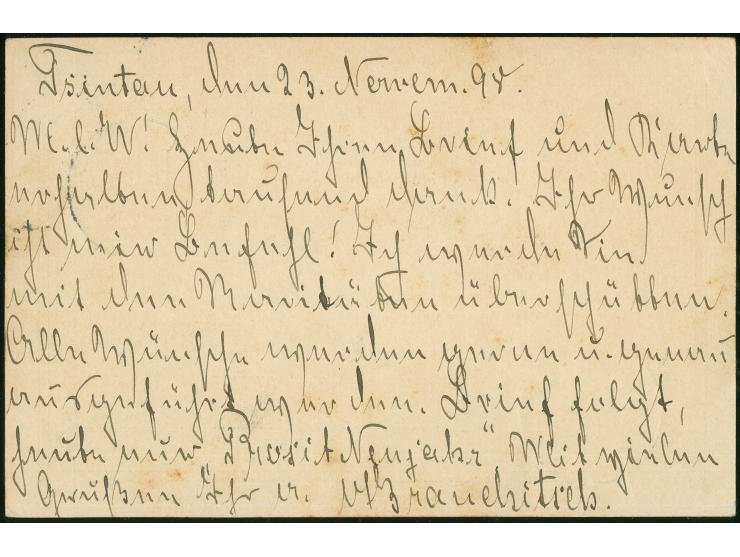 Tsintau, den 23. Novem. 98.
M. l. W! Heute Ihren Brief und Karte
erhalten, tausend Dank. Ihr Wunsch
ist mein Befehl! Ich werde Sie
mit den Raritäten überschütten.
Alle Wünsche werden gerne u. genau
ausgeführt werden. Brief folgt,
heute nur "Prosit Neujahr". Mit vielen
Grüßen Ihr a. v. Brauchitsch.